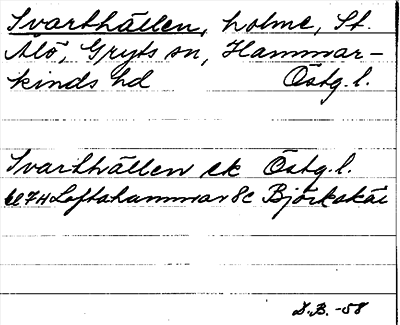 Svarthällen, holme, St.
Ålö, Gryts sn, Hammar-
kinds hd Östg. l.
Svarthällen ek Östg. l.
7H Loftahammar 8c Björkskär
D.B. -58